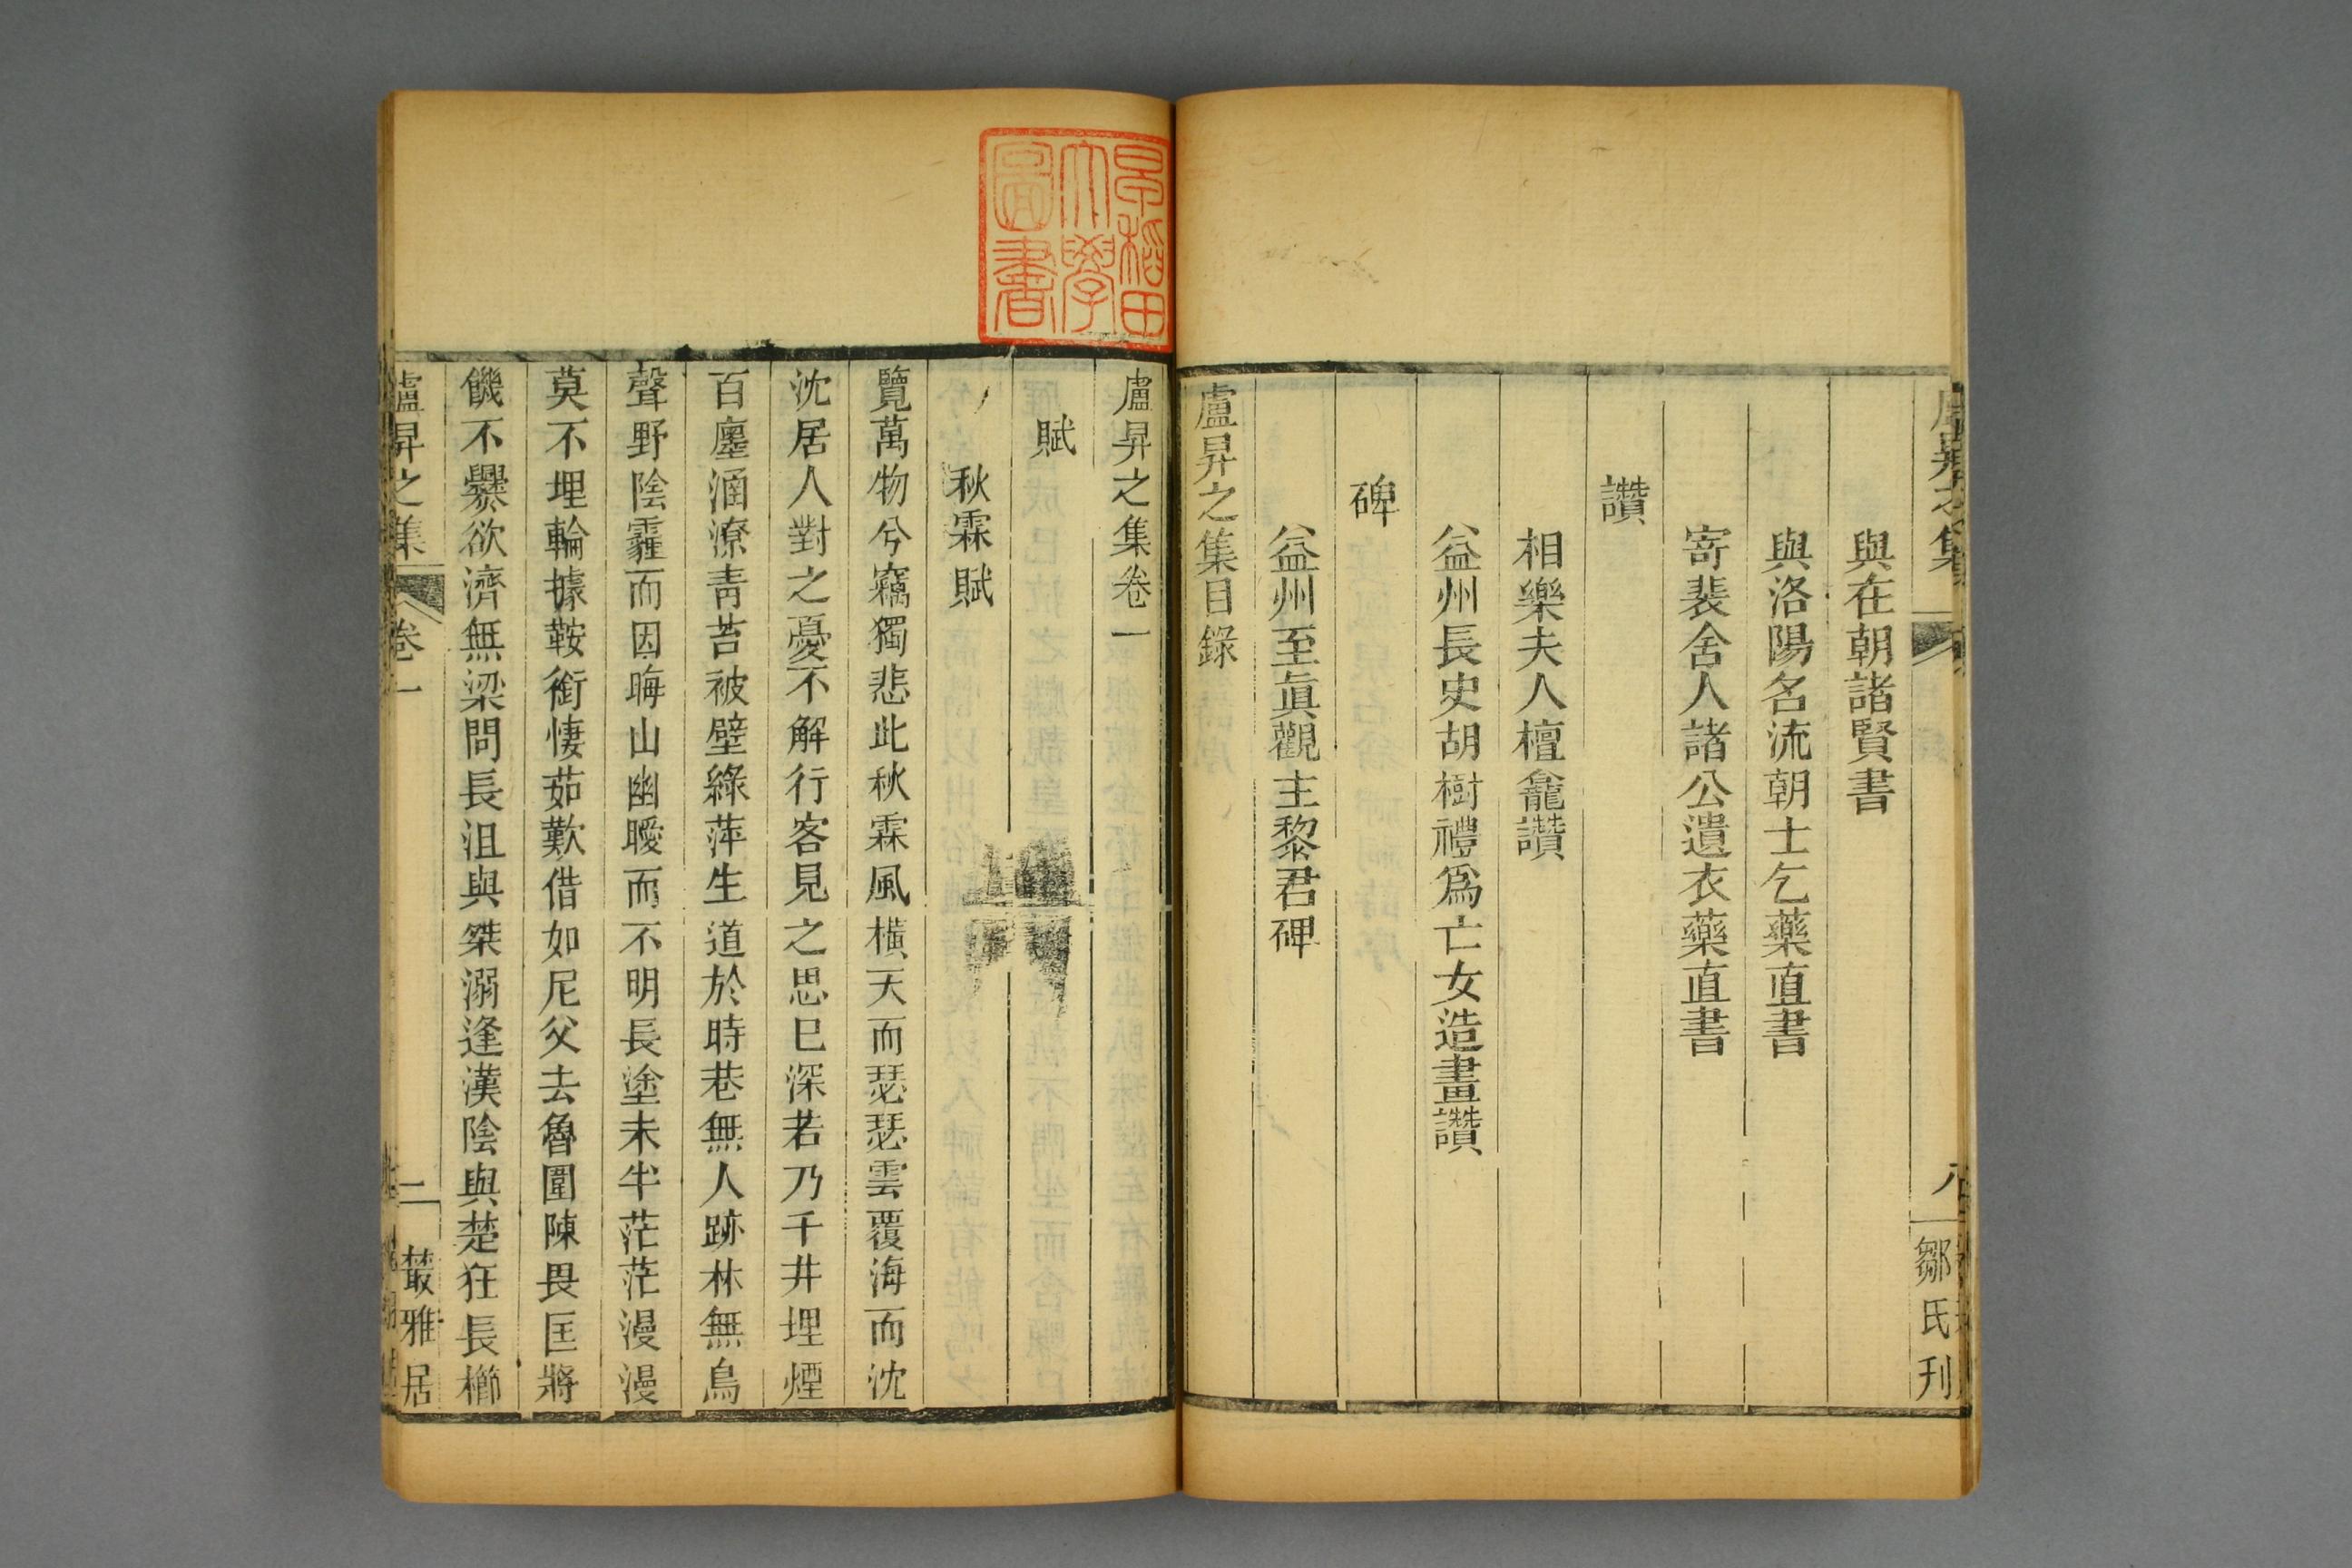 與在朝諸賢書
與洛陽名流朝士乞藥直書
寄裴舍人諸公遺衣藥直書
讚
相樂夫人檀龕讚
益州長史胡樹禮爲亡女造畫讚
碑
益州至眞觀主黎君碑
盧昇之集目錄
鄒氏刊
早稻田
大學
圖書
盧昇之集卷一
賦
秋霖賦
覽萬物兮竊獨悲此秋霖風橫天而瑟瑟雲覆海而沈
沈居人對之憂不解行客見之思巳深若乃千井埋煙
百廛涵潦靑苔被壁綠萍生道於時巷無人跡林無鳥
聲野陰霾而因晦山幽曖而不明長塗未半茫茫漫漫
莫不埋輪據鞍銜悽茹歎借如尼父去魯圍陳畏匡將
饑不爨欲濟無梁問長沮與桀溺逢漢陰與楚狂長櫛
盧昇之集
卷一
二
叢雅居